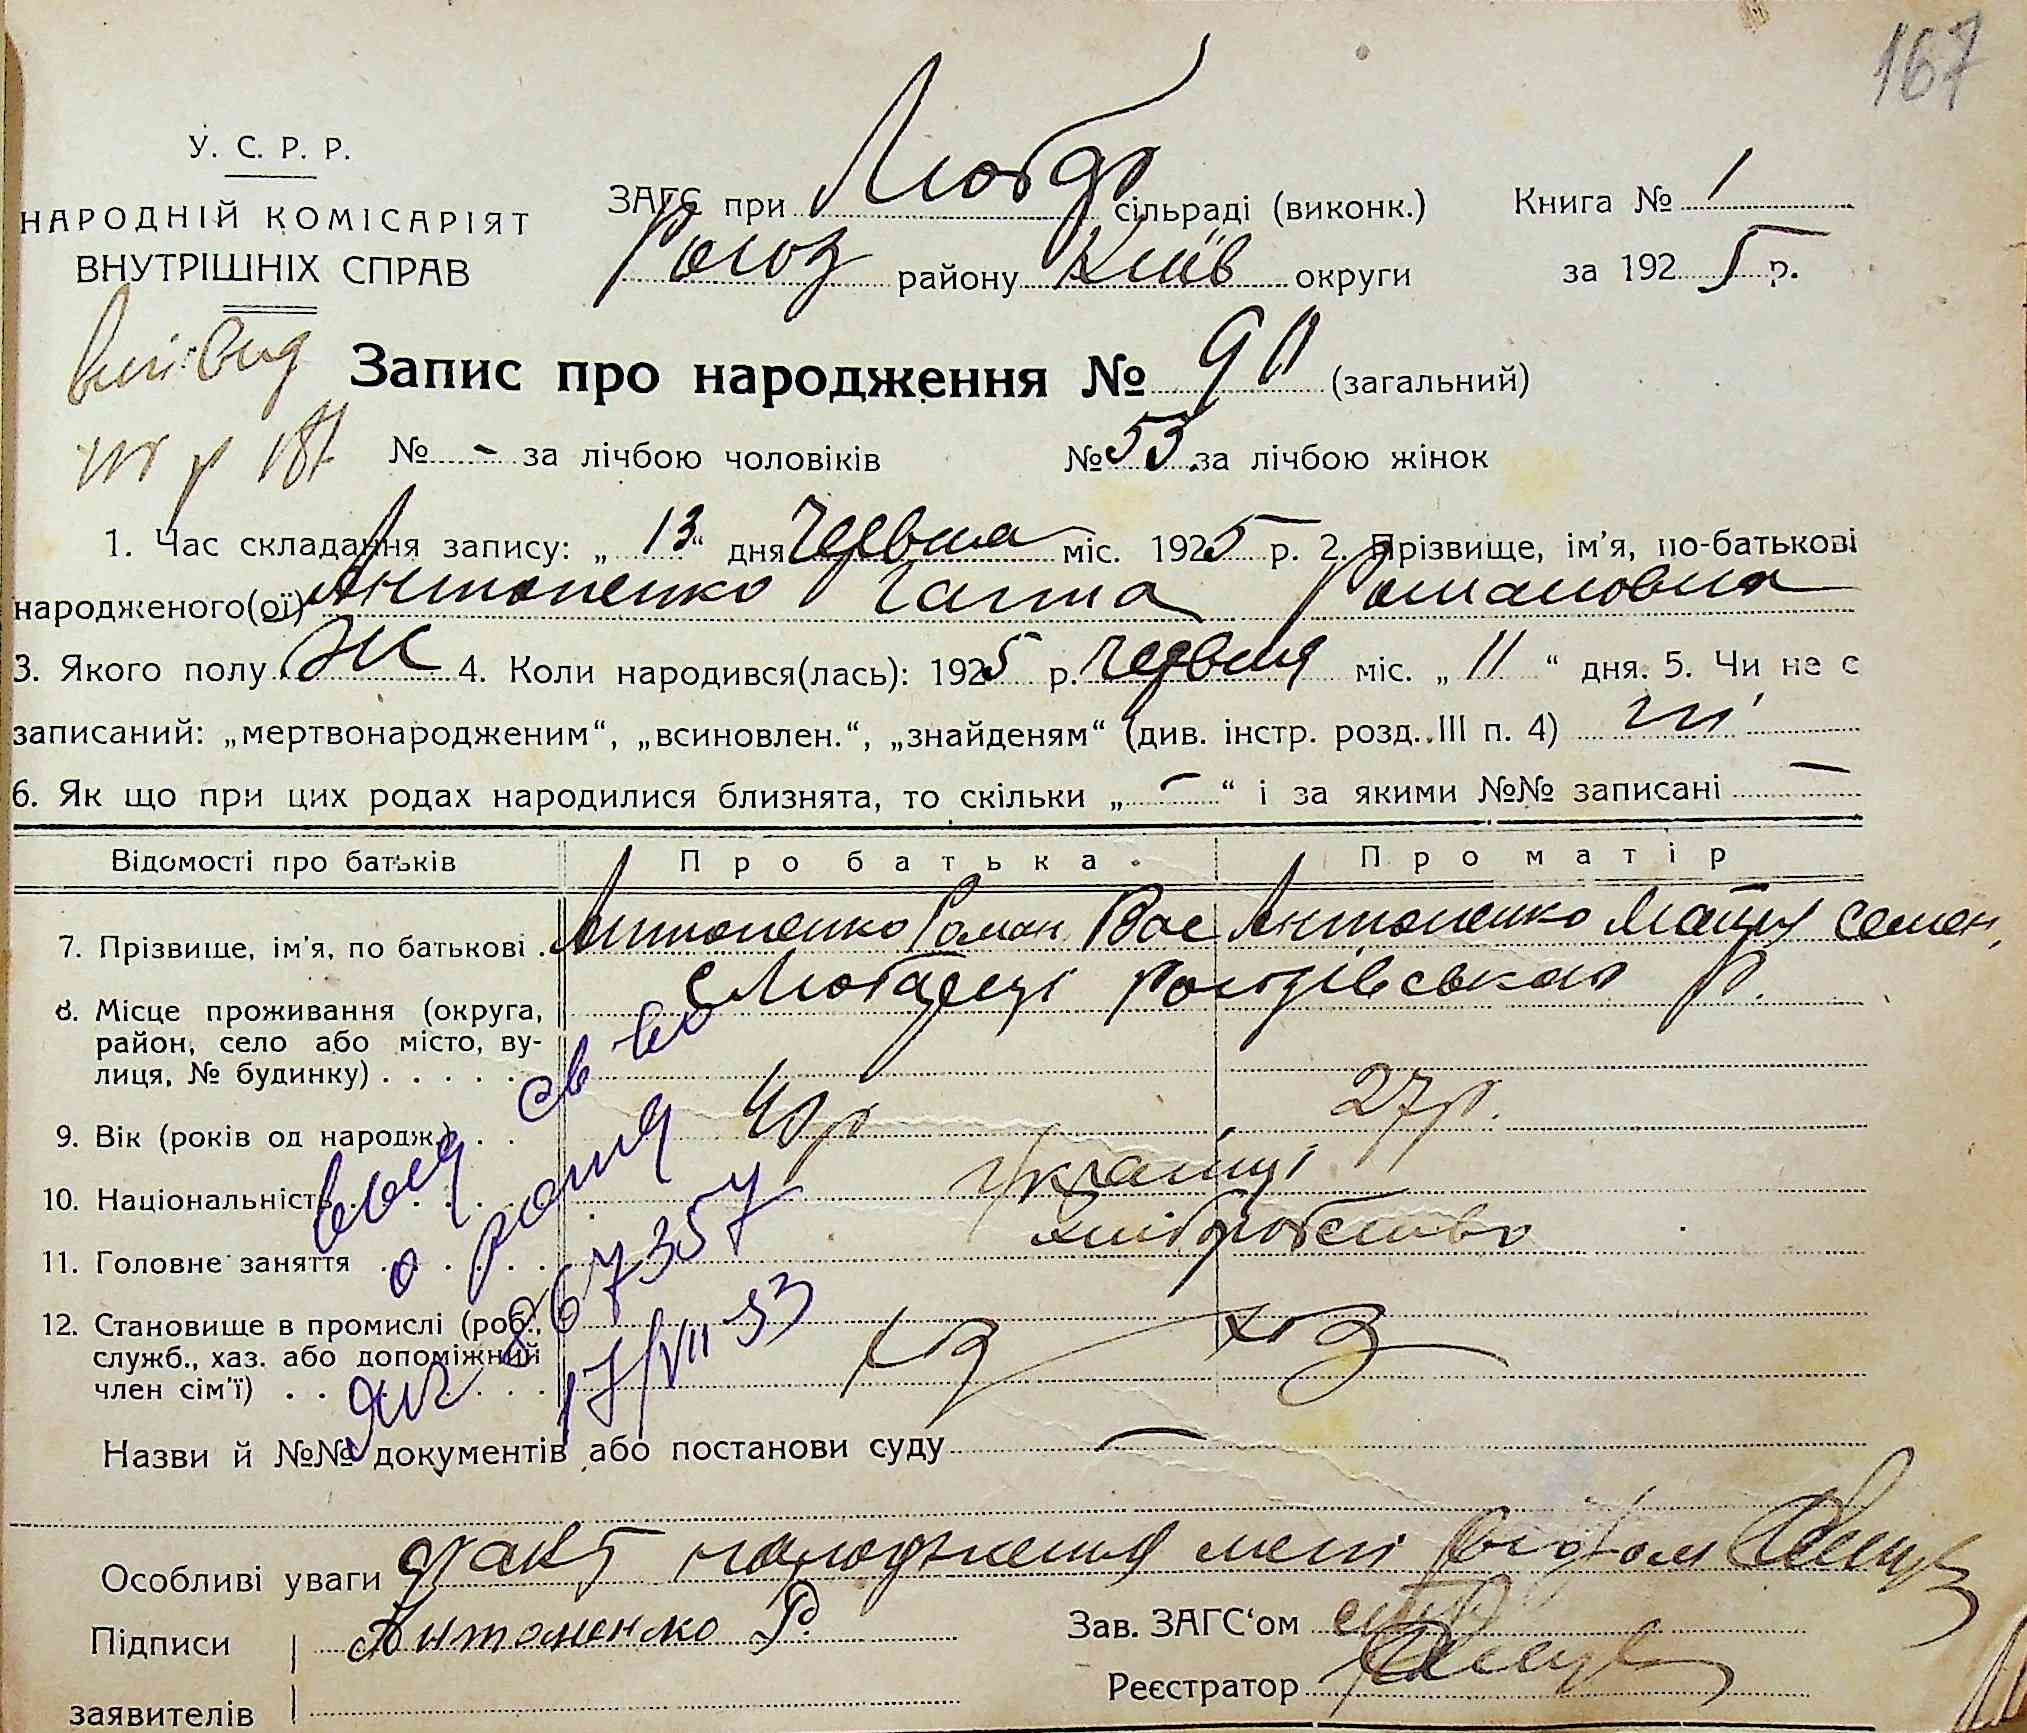 167
У. С. Р. Р.
НАРОДНІЙ КОМІСАРІЯТ
ВНУТРІШНІХ СПРАВ
ЗАГС при Любар сільраді (виконк.)
Рогоз району Київ округи
Книга № 1
за 1925 р.
Запис про народження № 90 (загальний)
№ - за лічбою чоловіків № 53 за лічбою жінок
1. Час складання запису: „ 13 “ дня Червня міс. 1925 р. 2. Прізвище, ім'я, по-батькові
народженого(ої) Антоненко Ганна Романовна
3. Якого полу Ж 4. Коли народився(лась): 1925 р. Червня міс. „ 11 “ дня. 5. Чи не є
записаний: „мертвонародженим“, „всиновлен.“, „знайденям“ (див. інстр. розд. III п. 4) ні
6. Як що при цих родах народилися близнята, то скільки „ - “ і за якими №№ записані -
Відомості про батьків Про батька Про матір
7. Прізвище, ім'я, по батькові . Антоненко Роман Вас Антоненко Семен,
8. Місце проживання (округа,
район, село або місто, ву-
лиця, № будинку) . . . . .
с Любарці р.
9. Вік (років од народж.) . . 40р 27р.
10. Національність . . . . . Українці
11. Головне заняття . . . . . Хліборобство
12. Становище в промислі (роб.,
служб., хаз. або допоміжний
член сім'ї) . . . . . . . . .
хаз
выд св во
о рожд
867357
17/VII 53
Назви й №№ документів або постанови суду -
Особливі уваги факт народження мені відом
Підписи Антоненко Р.
заявителів
Зав. ЗАГС'ом
Реєстратор